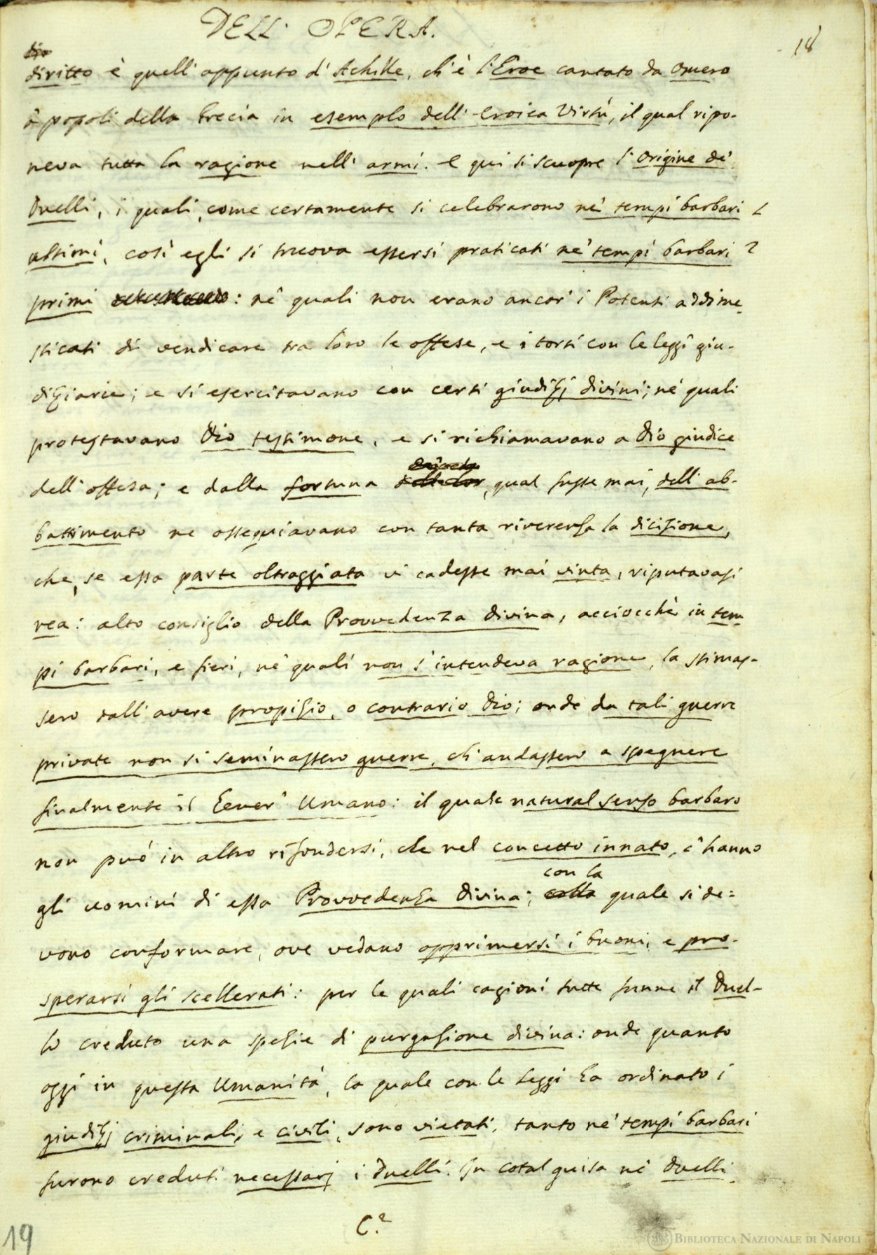 DELL' OPERA.
18
dio
diritto è quell'appunto d'Achille, ch'è l'Eroe cantato da Omero
a' popoli della Grecia in esemplo dell'eroica Virtù, il qual ripo-
neva tutta la ragione nell'armi. E qui si scuopre l'Origine de'
Duelli, i quali, come certamente si celebrarono ne' tempi barbari
ultimi, così egli si truova essersi praticati ne' tempi barbari 2
primi : ne' quali non erano ancor' i Potenti addime-
sticati di vendicare tra loro le offese, e i torti con le leggi giu-
diziarie; e si esercitavano con certi giudizj divini; ne' quali
protestavano Dio testimone, e si richiamavano a Dio giudice
dell'offesa; e dalla fortuna , qual fusse mai, dell'ab-
battimento ne ossequiavano con tanta riverenza la dicisione,
che, se essa parte oltraggiata vi cadesse mai vinta, riputavasi
rea: alto consiglio della Provvedenza divina, acciocchè in tem
pi barbari, e fieri, ne' quali non s'intendeva ragione, la stimas-
sero dall'avere propizio, o contrario Dio; onde da tali guerre
private non si seminassero guerre, ch'andassero a spegnere
finalmente il Gener' Umano: il quale natural senso barbaro
non può in altro rifondersi, che nel concetto innato, c'hanno
gli uomini di essa Provvedenza divina; con la
colla quale si de=
vono conformare, ove vedano opprimersi i buoni, e pro-
sperarsi gli scellerati: per le quali cagioni tutte funne il Duel-
lo creduto una spezie di purgazione divina: onde quanto
oggi in questa Umanità, la quale con le leggi ha ordinato i
giudizj criminali, e civili, sono vietati, tanto ne' tempi barbari
furono creduti necessarj i duelli. In cotal guisa ne' Duelli,
C2
19
BIBLIOTECA NAZIONALE DI NAPOLI